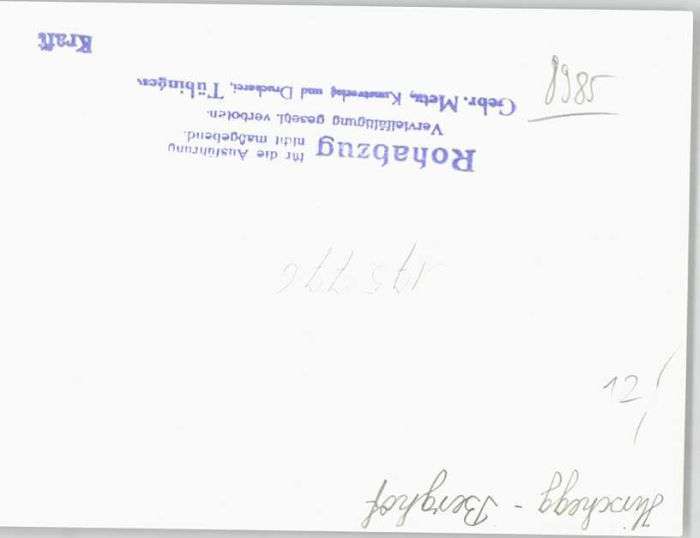 Hirschegg - Berghof
12
195776
Rohabzug für die Ausführung
nicht maßgebend.
Vervielfältigung gesetzl. verboten.
Gebr. Metz, Kunstverlag und Druckerei, Tübingen.
Kraft